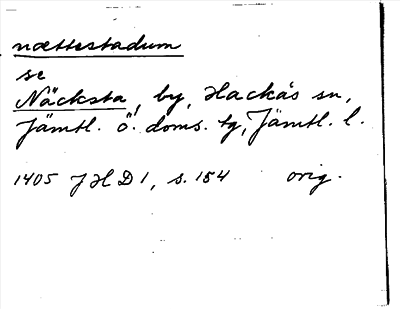 nættestadum
se
Näcksta, by, Hackås sn,
Jämtl. ö. doms. tg, Jämtl. l.
1405 JHD 1, s. 154 orig.